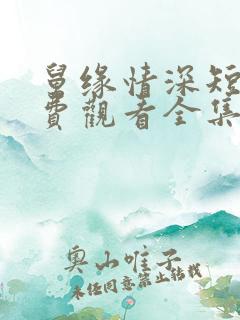 舅缘情深短
费觀看全集
奥山唯子
未经同意禁止转载